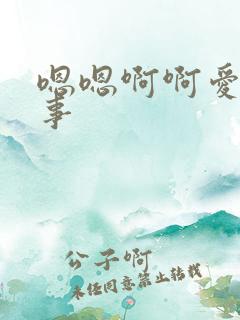 嗯嗯啊啊爱
事
公子啊
未经同意禁止转载